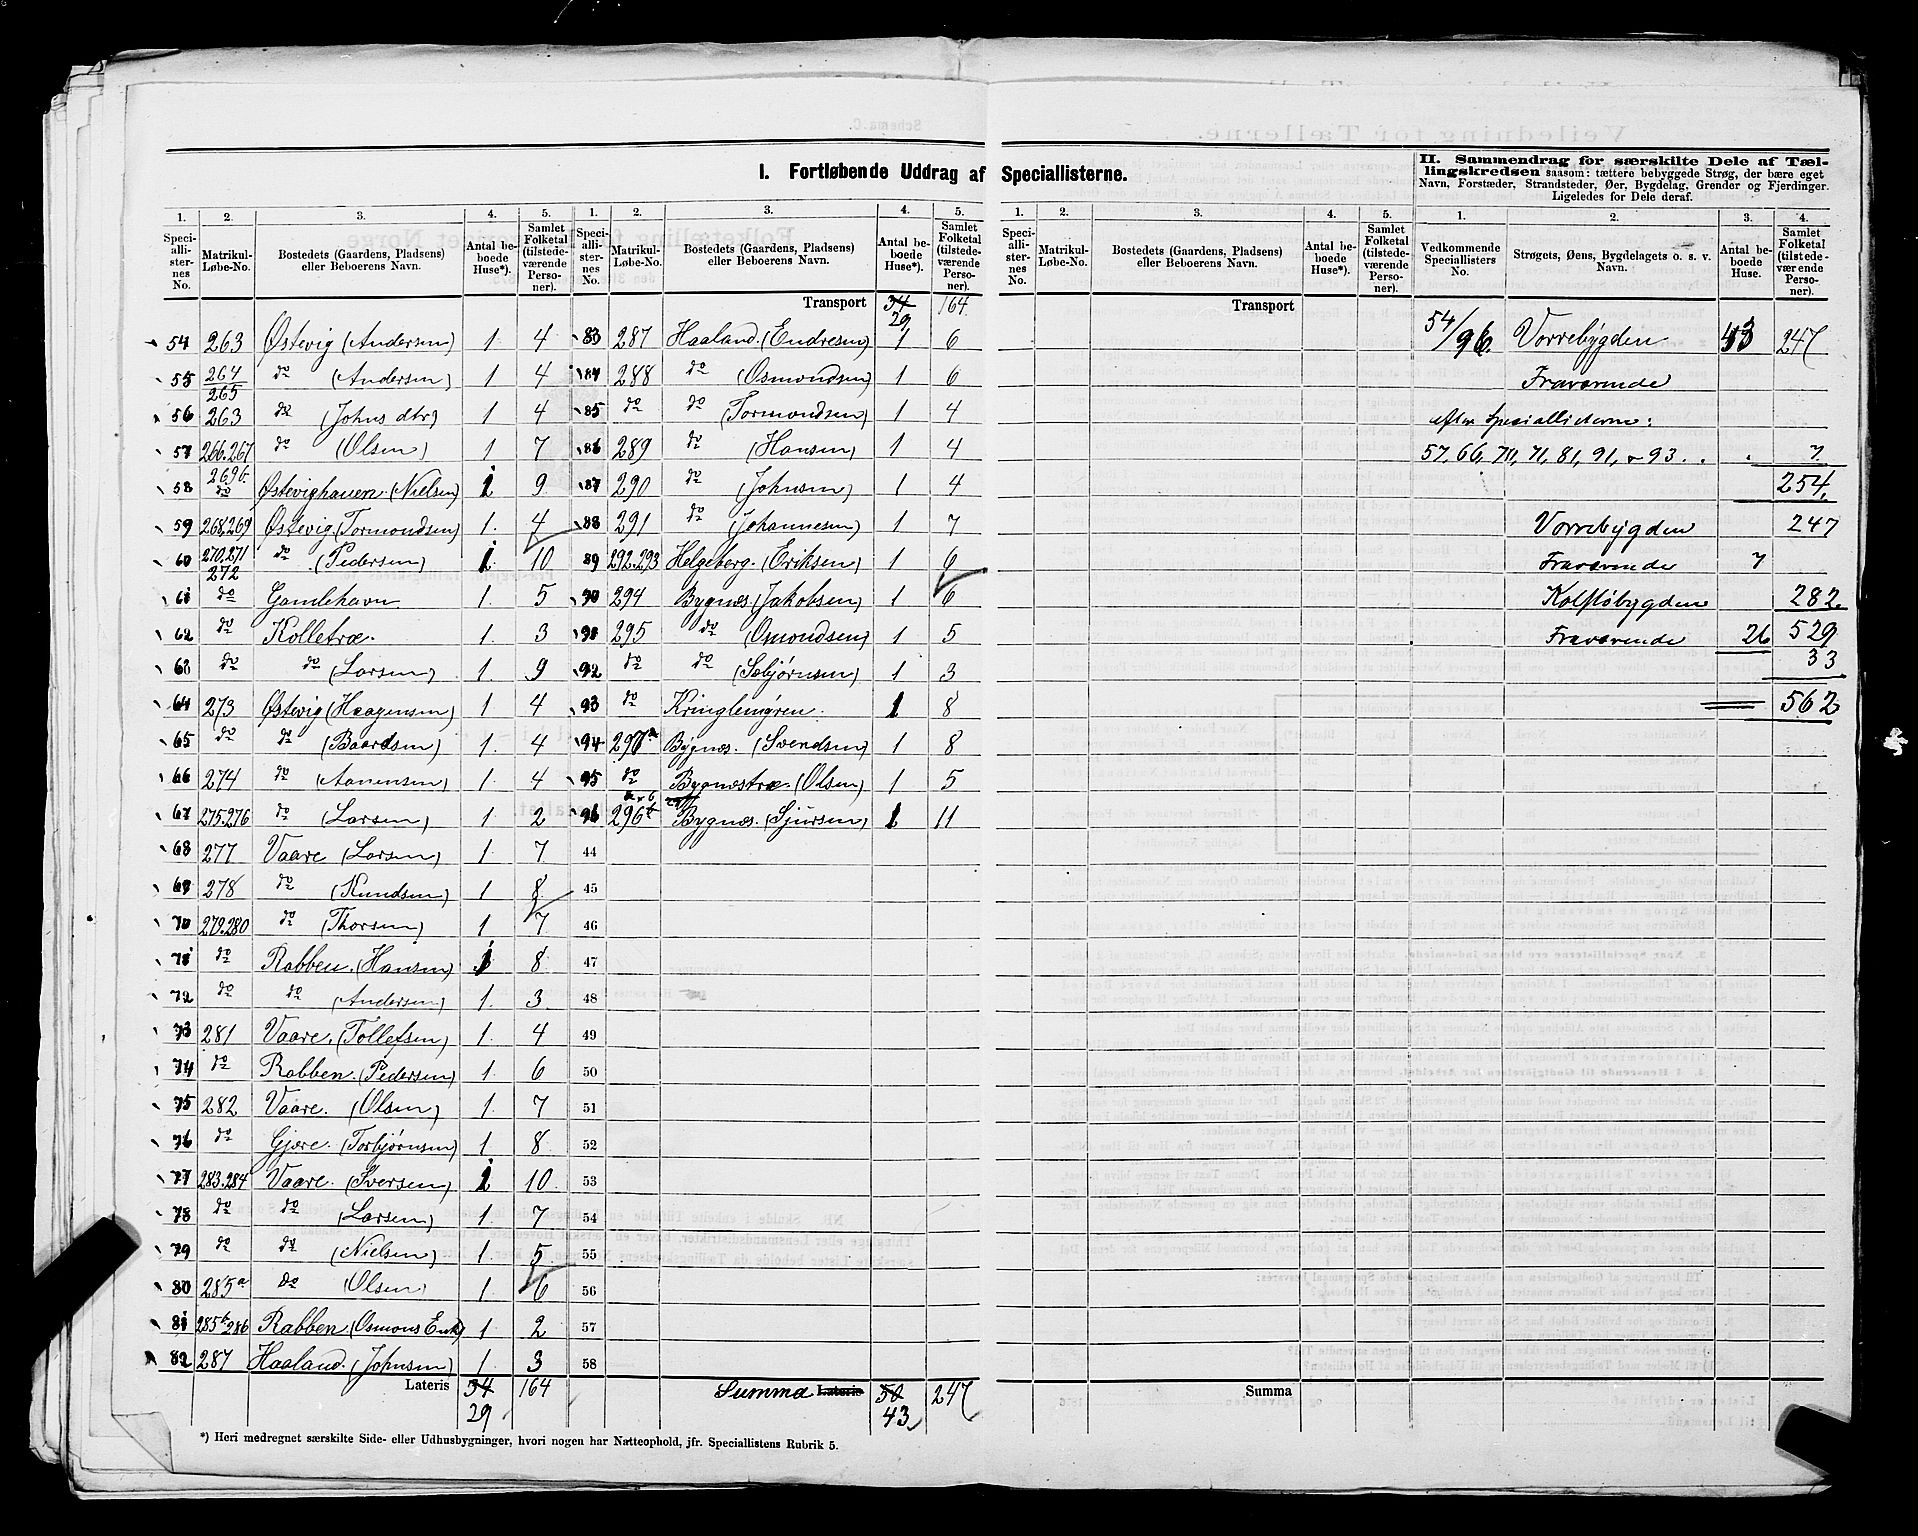 I. Fortløbende Uddrag af Speciallisterne.
II. Sammendrag for særskilte Dele af Tæl-
lingskredsen saasom: tættere bebyggede Strøg, der bære eget
Navn, Forstæder, Strandsteder, Øer, Bygdelag, Grender og Fjerdinger.
Ligeledes for Dele deraf.
1. 2. 3. 4. 5. 1. 2. 3. 4. 5.
Speciallisternes No. Matrikul-Løbe-No. Bostedets (Gaardens, Pladsens) eller Beboerens Navn. Antal beboede Huse*). Samlet Folketal (tilstedeværende Personer).
Speciallisternes No. Matrikul-Løbe-No. Bostedets (Gaardens, Pladsens) eller Beboerens Navn. Antal beboede Huse*). Samlet Folketal (tilstedeværende Personer).
Transport 34 29 164
54 263 Østevig (Andersen) 1 4
55 264/265 do (Andersen) 1 4
56 263 do (Johns dtr) 1 4
57 266.267 do (Olsen) 1 7
58 269b. do Østevighauen (Nielsen) 1 9
59 268,269 Østevig (Tormondsen) 1. 4
60 270,271 272 do (Pedersen) 1 10
61 do Gamlehavn 1. 5
62 do Kolletræ. 1. 3
63 do do (Larsen) 1. 9
64 273 Østevig (Haagensen) 1 4
65 do do (Baardsen) 1. 4
66 274 do (Aanensen) 1. 4
67 275.276 do (Larsen) 1. 2
68 277 Vaare (Larsen) 1. 7
69 278 do (Knudsen) 1 8
70 279.280 do (Thorsen) 1 7
71 do Rabben. (Hansen) 1 8
72 do do (Andersen) 1. 3
73 281 Vaare. (Tollefsen) 1. 4
74 do Rabben. (Pedersen) 1. 6
75 282 Vaare. (Olsen) 1. 7
76 do Gjære. (Torbjørnsen) 1. 8
77 283.284 Vaare. (Iversen) 1 10
78 do do (Larsen) 1. 7
79 do do (Nielsen) 1. 5
80 285a do (Olsen) 1 6
81 285b286 Rabben (Osmons Enk) 1 2
82 287 Haaland. (Johnsen) 1. 3
Lateris 34 29 164
83 287 Haaland. (Endresen) 1 6
84 288 do (Osmondsen) 1 6
85 do do (Tormondsen) 1 4
86 289 do (Hansen) 1 4
87 290 do (Johnsen) 1 4
88 291 do (Johannesen) 1 7
89 292.293 Helgeberg. (Eriksen) 1 6
90 294 Bygnæs. (Jakobsen) 1 6
91 295 do (Osmondsen) 1 5
92 do do (Sebjørnsen) 1 3
93 do Kringlemyren. 1 8
94 297a Bygnæs. (Svendsen) 1 8
95 do Bygnæstræ. (Olsen) 1 5
96 296 Bygnæs. (Sjursen) 1 11
44
45
46
47
48
49
50
51
52
53
54
55
56
57
58
Summa Lateris 50 43 247
*) Heri medregnet særskilte Side- eller Udhusbygninger, hvori nogen har Natteophold, jfr. Speciallistens Rubrik 5.
1. 2. 3. 4. 5.
Speciallisternes No. Matrikul-Løbe-No. Bostedets (Gaardens, Pladsens) eller Beboerens Navn. Antal beboede Huse*). Samlet Folketal (tilstedeværende Personer).
Transport
Summa
1. 2. 3. 4.
Vedkommende Speciallisters No. Strøgets, Øens, Bygdelagets o. s. v. Navn. Antal beboede Huse. Samlet Folketal (tilstedeværende Personer).
54/96. Vorrebygden 43 247
Fraværende
efter Speciallisterne:
57, 66, 70, 71, 81, 91, & 93. . . 7.
254.
Vorrebygden 247
Fraværende 7
Kolstøbygden 282.
Fraværende 26 529
33
562